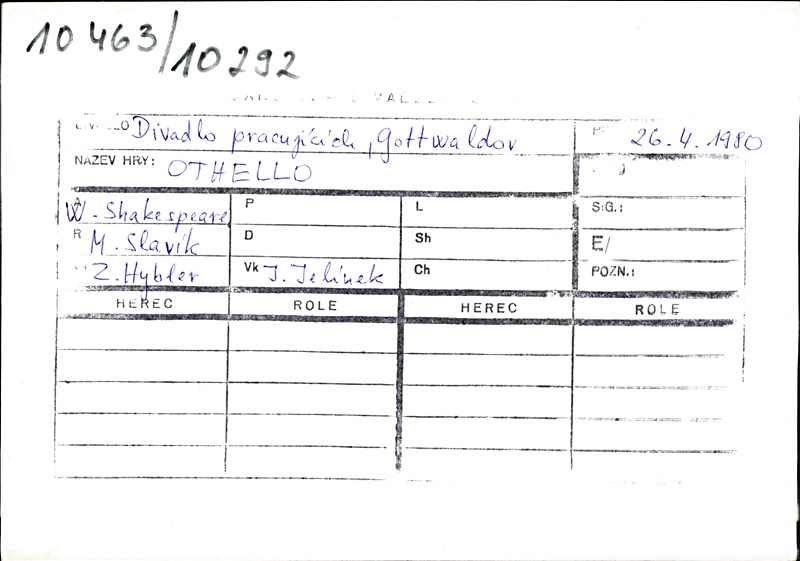 10 463/10 292
Divadlo pracujících, Gottwaldov
26.4.1980
NÁZEV HRY: OTHELLO
A W. Shakespeare P L S:G.:
R M. Slavík D Sh E/
Z. Hybler Vk J. Jelínek Ch POZN.:
HEREC ROLE HEREC ROLE